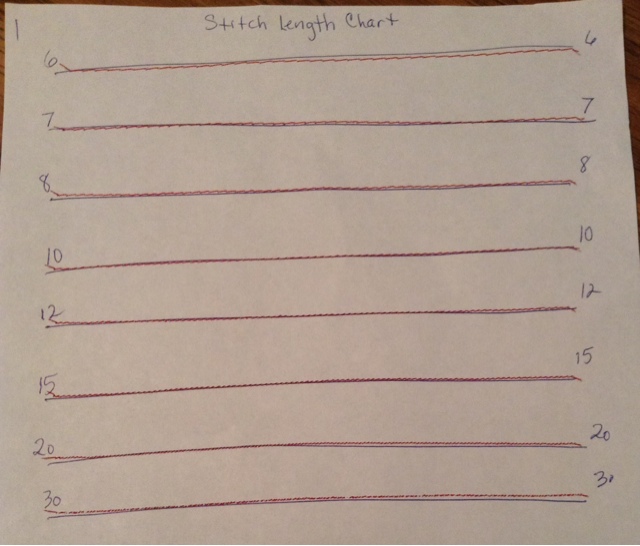 1 Stitch Length Chart
6 6
7 7
8 8
10 10
12 12
15 15
20 20
30 30